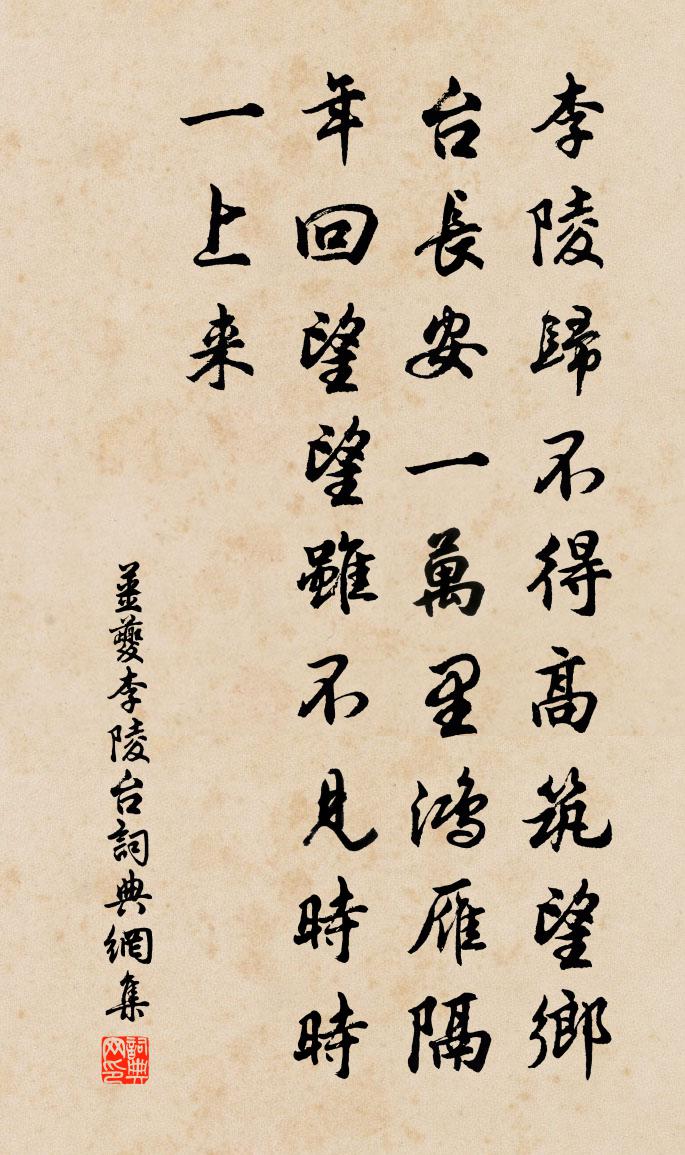 李陵歸不得高筑望鄉
台長安一萬里鴻雁隔
年回望望雖不見時時
一上来
姜夔李陵台詞典網集
詞典网印